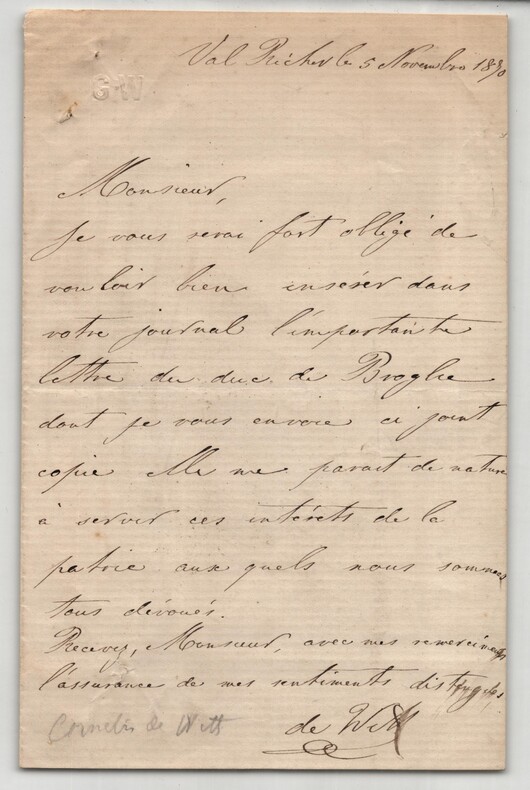 Val Richer le 5 Novembre 1870
G W
Monsieur,
Je vous serai fort obligé de
vouloir bien insérer dans
votre journal l'importante
lettre du duc de Broglie
dont je vous envoie ci joint
copie Elle me parait de nature
à servir ces intérêts de la
patrie aux quels nous sommes
tous dévoués.
Recevez, Monsieur, avec mes remerciments
l'assurance de mes sentiments distingués.
de Witt
Cornelis de Witt